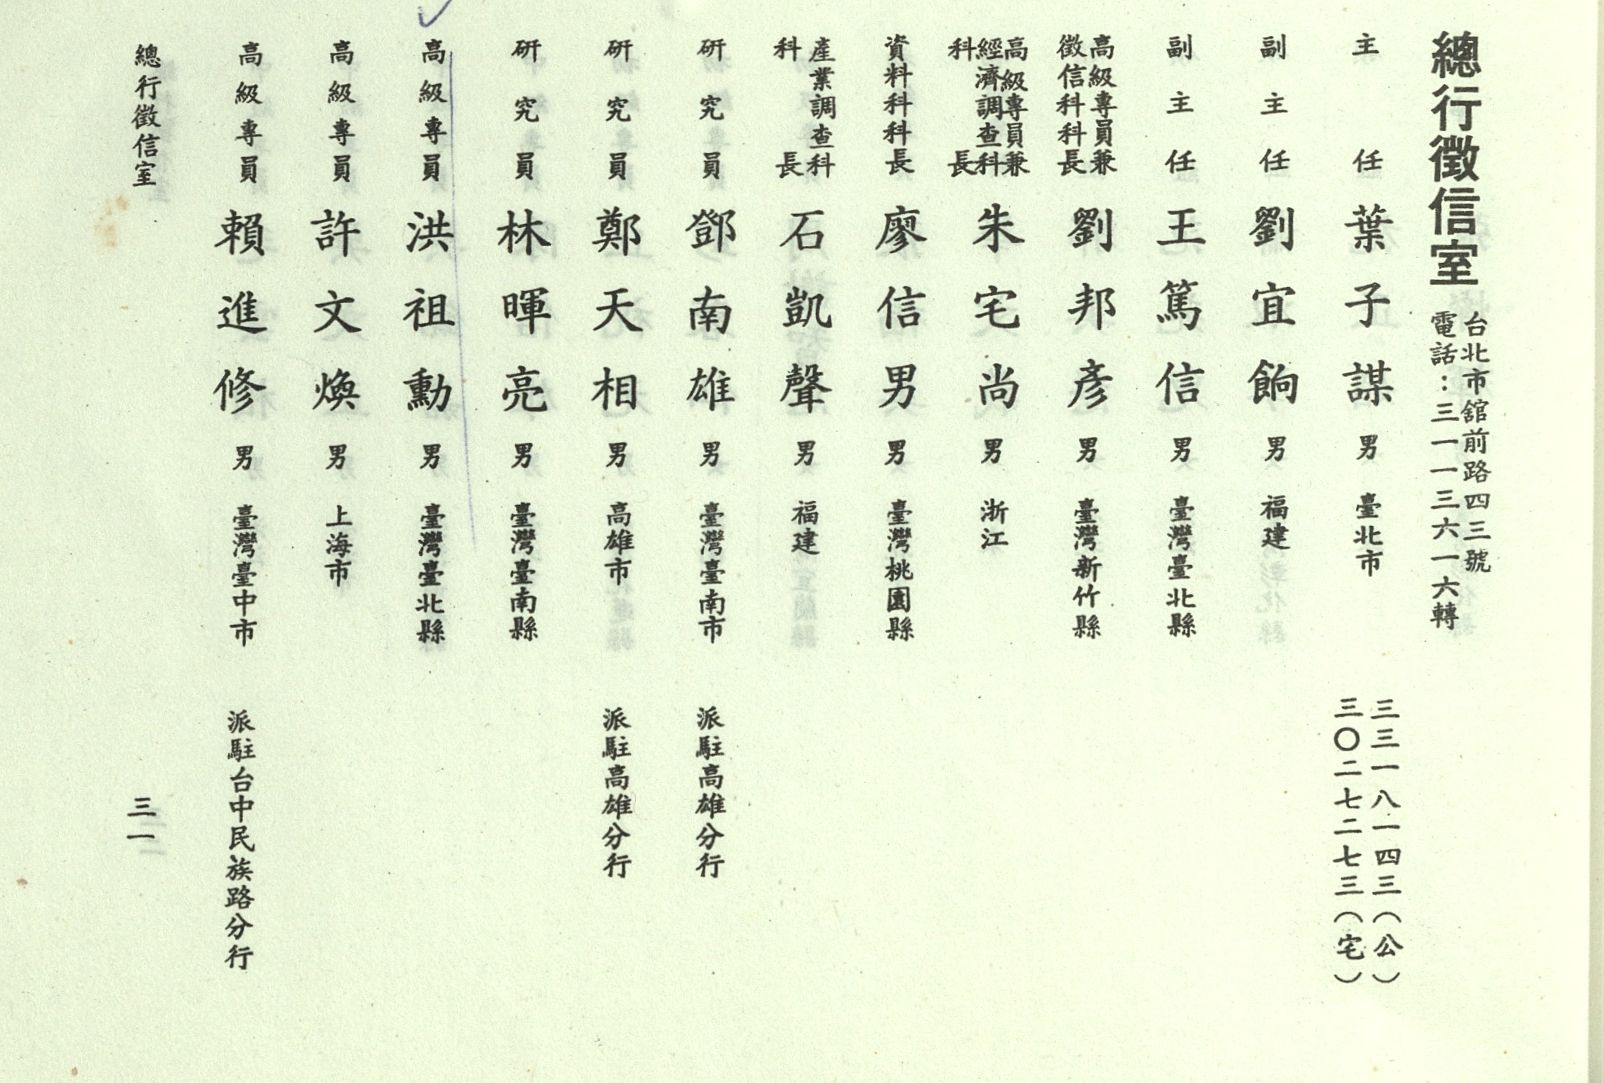 總行徵信室
台北市舘前路四三號
電話：三一一三六一一六轉
主任 葉子謀 男 臺北市
三三一八一四三（公）
三〇二七二七三（宅）
副主任 劉宜餉 男 福建
副主任 王篤信 男 臺灣臺北縣
高級專員兼
徵信科科長 劉邦彥 男 臺灣新竹縣
高級專員兼
經濟調查科
科長 朱宅尚 男 浙江
資料科科長 廖信男 男 臺灣桃園縣
產業調查科
科長 石凱聲 男 福建
研究員 鄧南雄 男 臺灣臺南市 派駐高雄分行
研究員 鄭天相 男 高雄市 派駐高雄分行
研究員 林暉亮 男 臺灣臺南縣
高級專員 洪祖勳 男 臺灣臺北縣
高級專員 許文煥 男 上海市
高級專員 賴進修 男 臺灣臺中市 派駐台中民族路分行
總行徵信室
三一